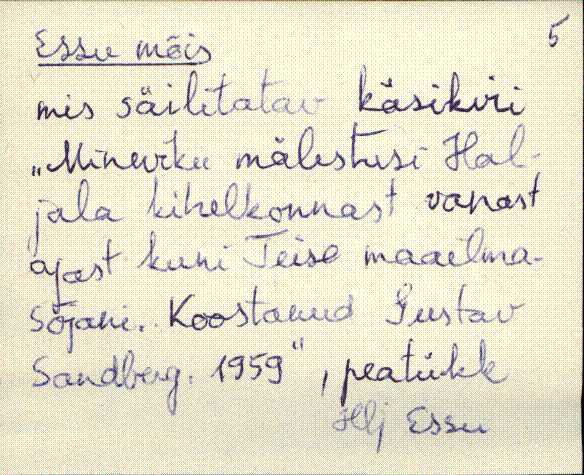 5
Essu mõis
mis säilitatav käsikiri
„Mineviku mälestusi Hal-
jala kihelkonnast vanast
ajast kuni Teise maailma-
sõjani. Koostanud Gustav
Sandberg. 1959", peatükk
Hlj Essu